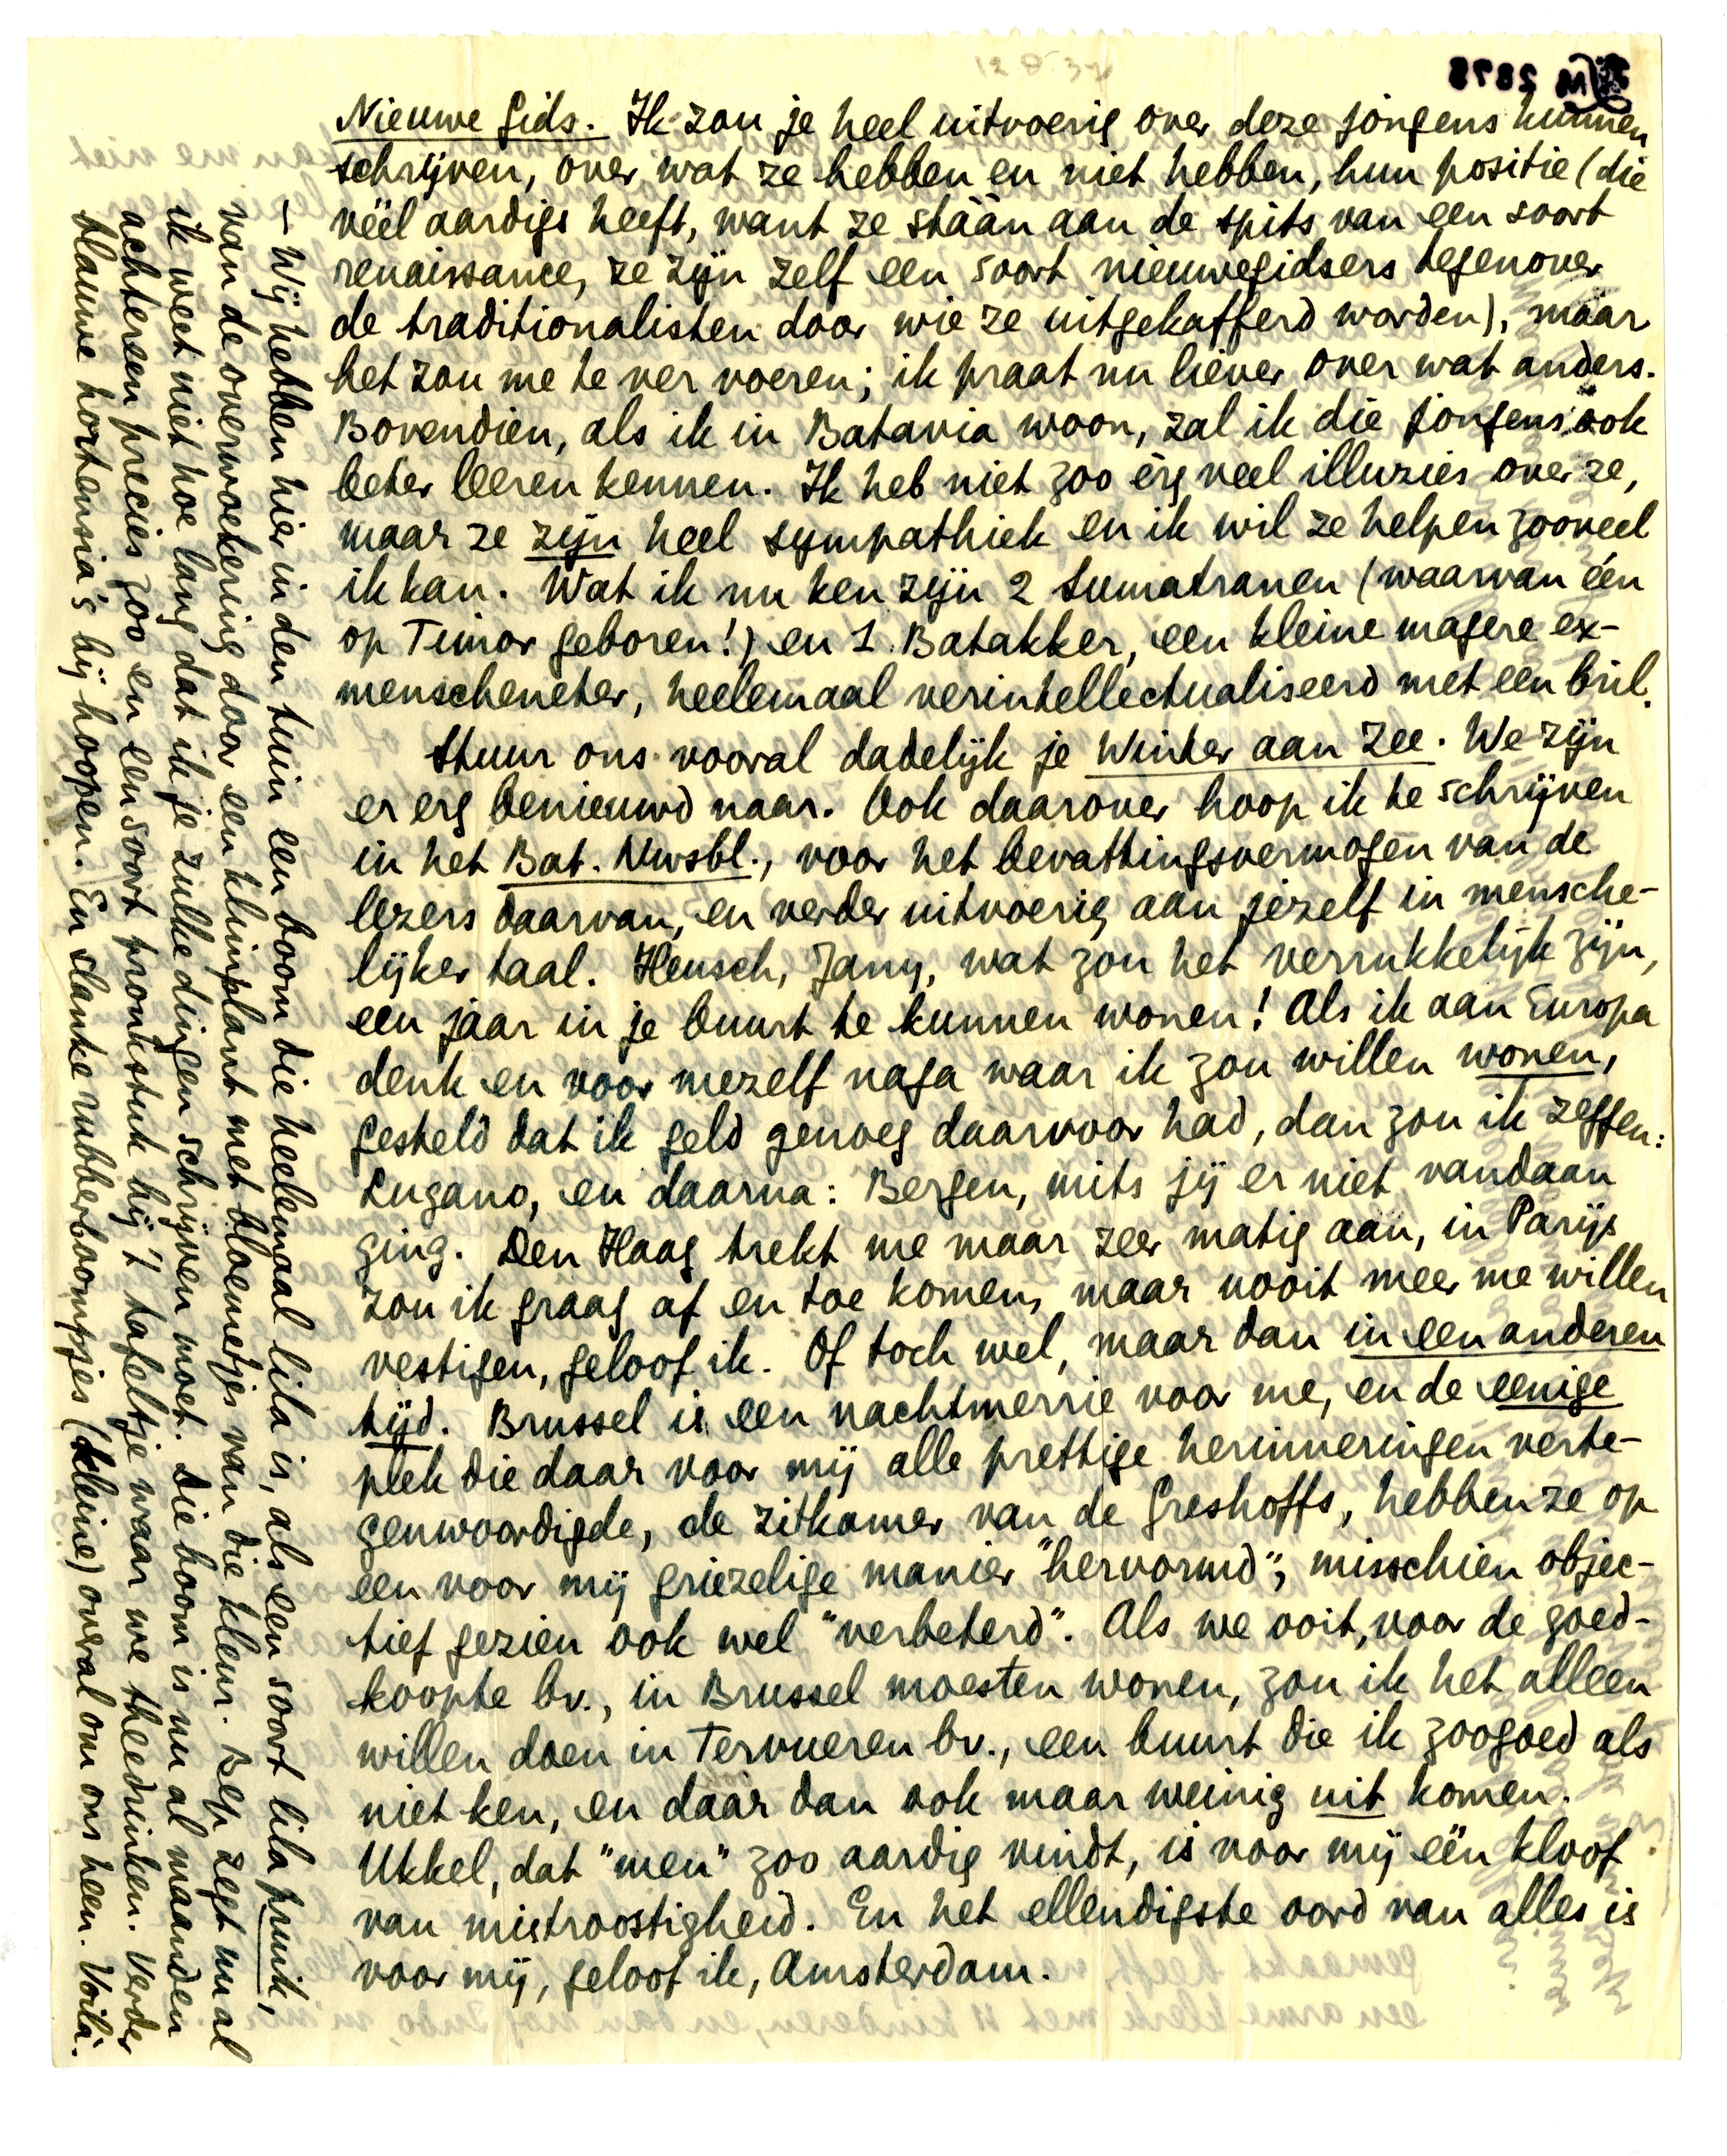 12.8.37
Nieuwe Gids. Ik zou je heel uitvoerig over deze jongens kunnen
schrijven, over wat ze hebben en niet hebben, hun positie (die
véél aardigs heeft, want ze stáán aan de spits van een soort
renaissance, ze zijn zelf een soort nieuwegidsers tegenover
de traditionalisten door wie ze uitgekafferd worden), maar
het zou me te ver voeren; ik praat nu liever over wat anders.
Bovendien, als ik in Batavia woon, zal ik die jongens ook
beter leeren kennen. Ik heb niet zoo èrg veel illuzies over ze,
maar ze zijn heel sympathiek en ik wil ze helpen zooveel
ik kan. Wat ik nu ken zijn 2 Sumatranen (waarvan één
op Timor geboren!) en 1 Batakker, een kleine magere ex-
menscheneter, heelemaal verintellectualiseerd met een bril.
Stuur ons vooral dadelijk je Winter aan Zee. We zijn
er erg benieuwd naar. Ook daarover hoop ik te schrijven
in het Bat. Nwsbl., voor het bevattingsvermogen van de
lezers daarvan, en verder uitvoerig aan jezelf in mensche-
lijker taal. Heusch, Jany, wat zou het verrukkelijk zijn,
een jaar in je buurt te kunnen wonen! Als ik aan Europa
denk en voor mezelf naga waar ik zou willen wonen,
gesteld dat ik geld genoeg daarvoor had, dan zou ik zeggen:
Lugano, en daarna: Bergen, mits jij er niet vandaan
ging. Den Haag trekt me maar zeer matig aan, in Parijs
zou ik graag af en toe komen, maar nooit meer me willen
vestigen, geloof ik. Of toch wel, maar dan in een anderen
tijd. Brussel is een nachtmerrie voor me, en de eenige
plek die daar voor mij alle prettige herinneringen verte-
genwoordigde, de zitkamer van de Greshoffs, hebben ze op
een voor mij griezelige manier "hervormd"; misschien objec-
tief gezien ook wel "verbeterd". Als we ooit, voor de goed-
koopte bv., in Brussel moesten wonen, zou ik het alleen
willen doen in Tervueren bv., een buurt die ik zoogoed als
niet ken, en daar dan ook maar weinig uit komen.
Ukkel, dat "men" zoo aardig vindt, is voor mij één kloof
van mistroostigheid. En het ellendigste oord van alles is
voor mij, geloof ik, Amsterdam.
– Wij hebben hier in den tuin een boom die heelemaal lila is, als een soort lila pruik,
van de overwoekering door een klimplant met bloemetjes van die kleur. Bep zegt nu al
ik weet niet hoe lang dat ik je zulke dingen schrijven moet. Die boom is nu al maanden
achtereen precies zoo en een soort pronkstuk bij 't tafeltje waar we theedrinken. Verder
blauwe hortensia's bij hoopen. En slanke rubberboompjes (kleine) overal om ons heen. Voilà.